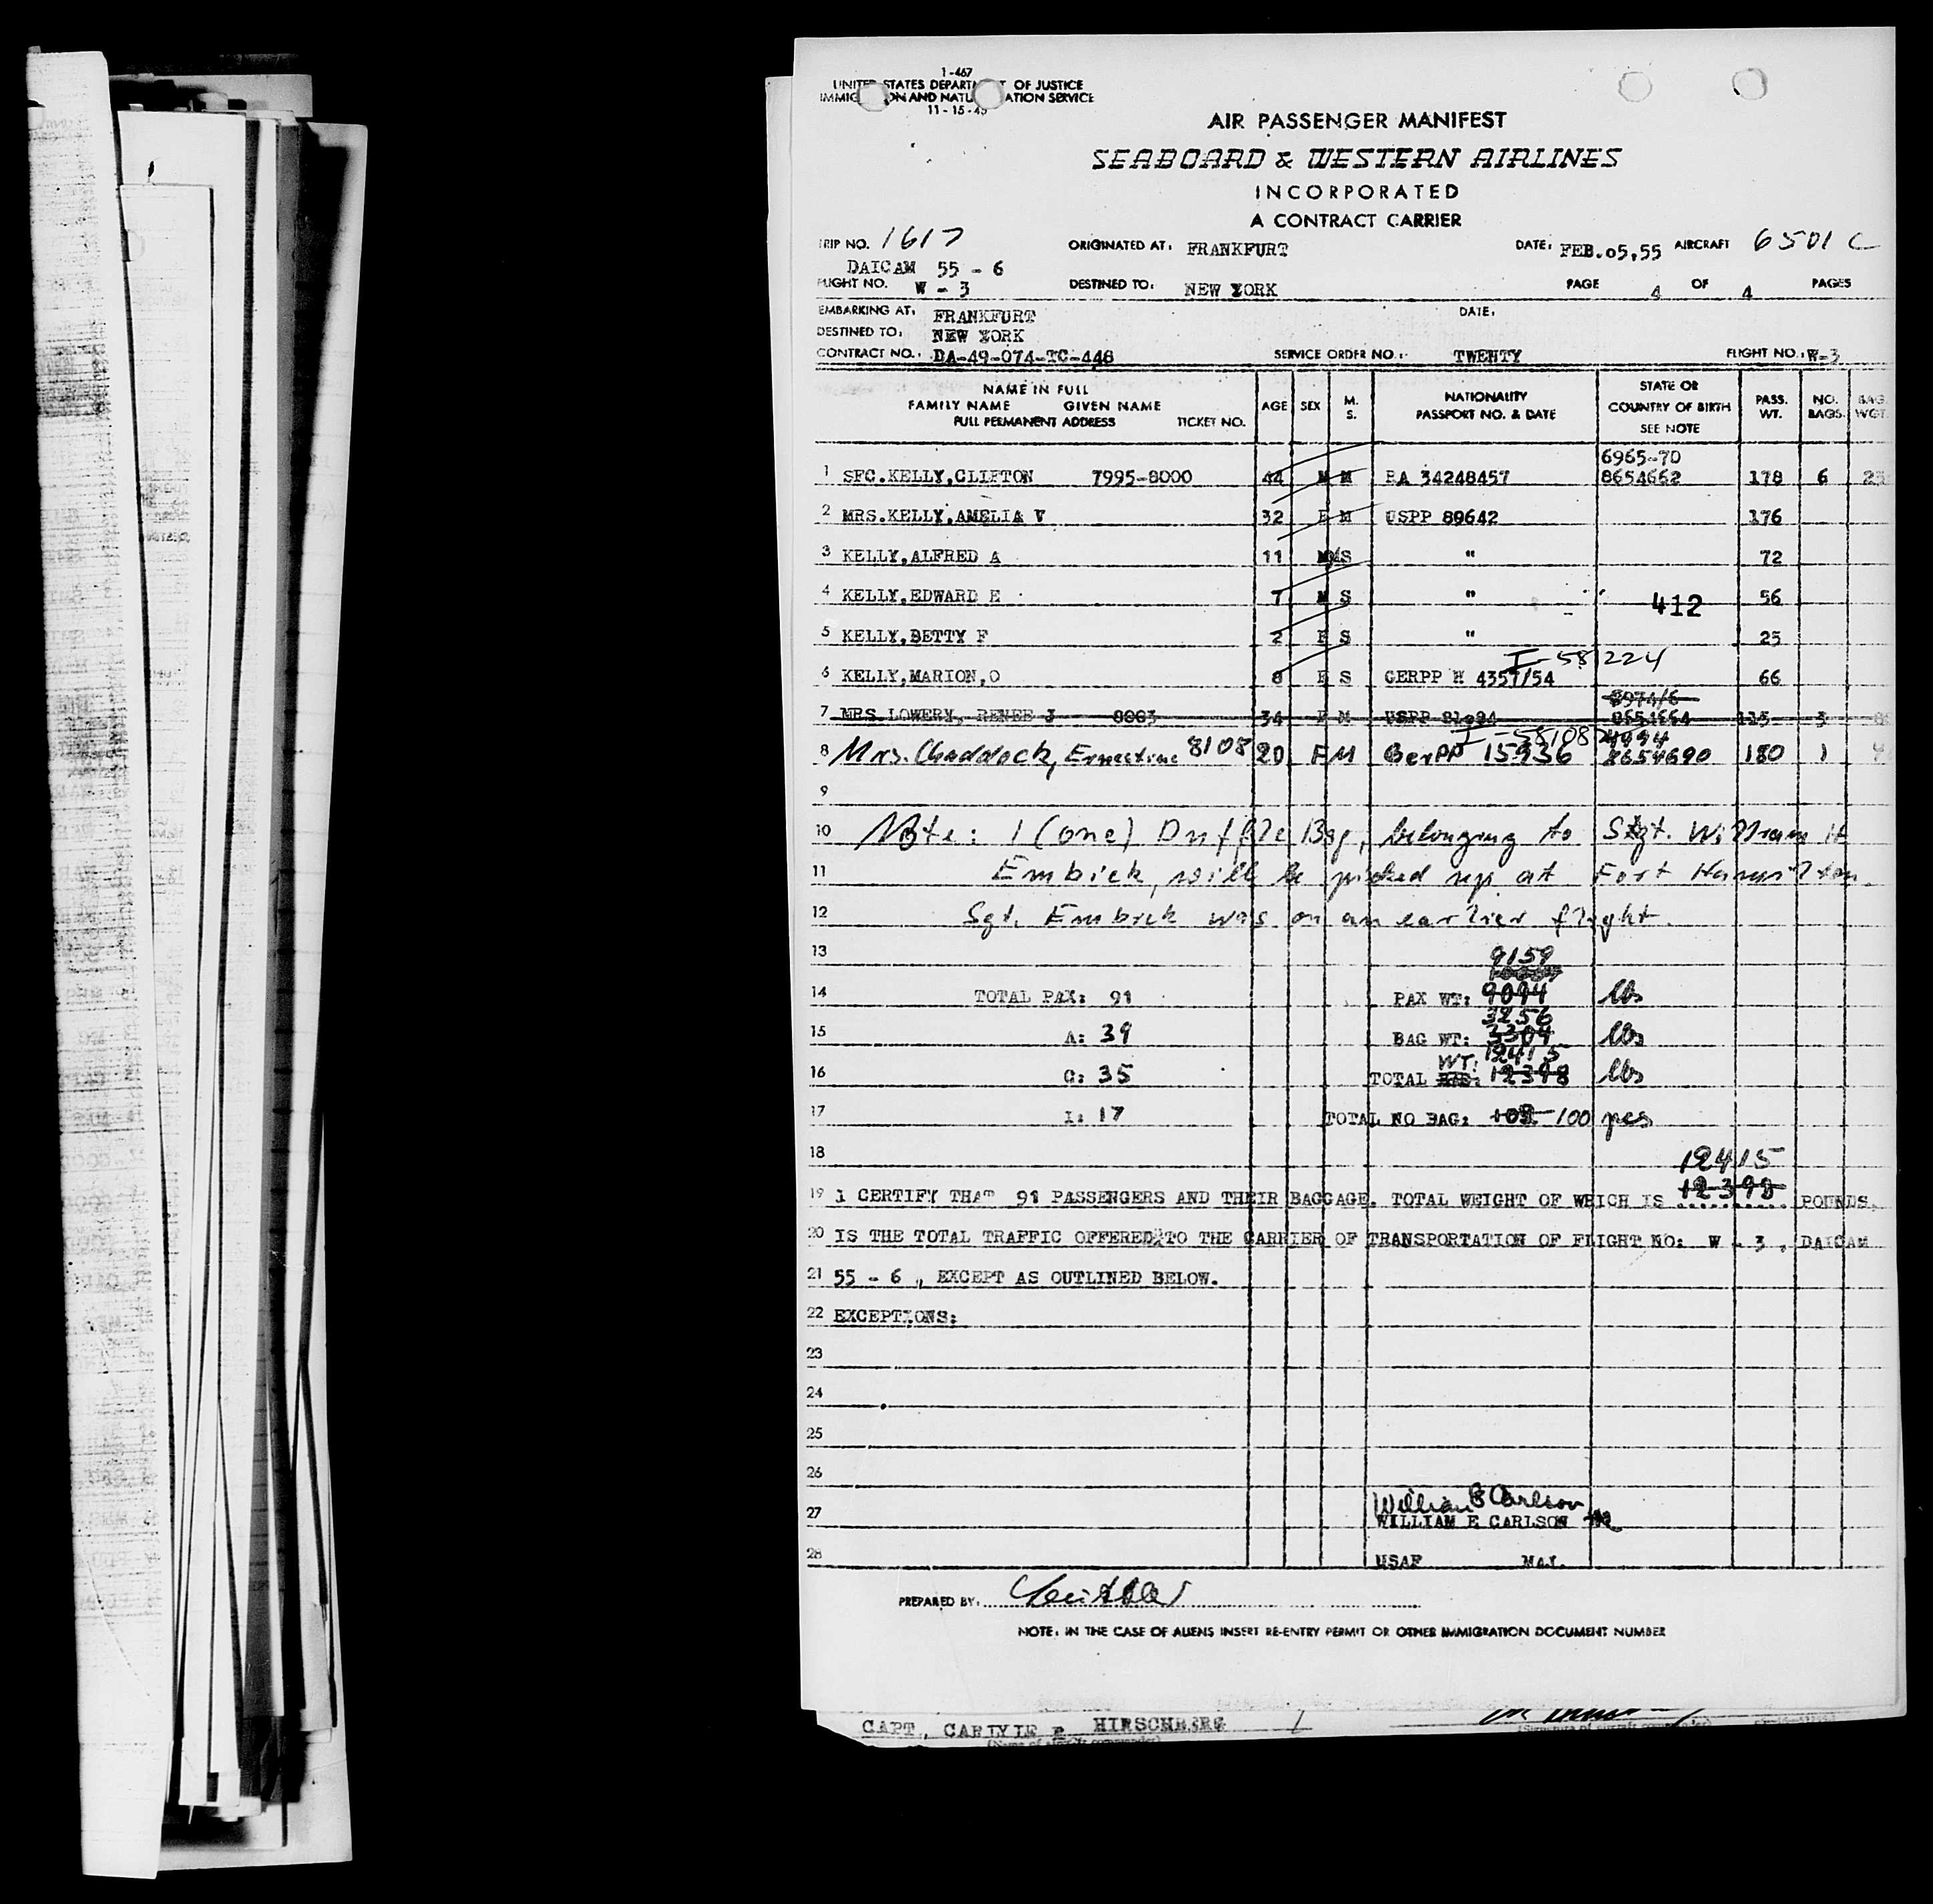 1-467
UNITED STATES DEPARTMENT OF JUSTICE
IMMIGRATION AND NATURALIZATION SERVICE
11-15-45
AIR PASSENGER MANIFEST
SEABOARD & WESTERN AIRLINES
INCORPORATED
A CONTRACT CARRIER
TRIP NO. 1617 ORIGINATED AT: FRANKFURT DATE: FEB.05,55 AIRCRAFT 6501 C
DAICAM 55 - 6
FLIGHT NO. W - 3 DESTINED TO: NEW YORK PAGE 4 OF 4 PAGES
EMBARKING AT: FRANKFURT DATE:
DESTINED TO: NEW YORK
CONTRACT NO.: DA-49-074-TC-448 SERVICE ORDER NO.: TWENTY FLIGHT NO.: W-3
NAME IN FULL
FAMILY NAME GIVEN NAME
FULL PERMANENT ADDRESS TICKET NO. AGE SEX M. S. NATIONALITY PASSPORT NO. & DATE STATE OR COUNTRY OF BIRTH SEE NOTE PASS. WT. NO. BAGS. BAG. WGT.
6965-70
1 SFC.KELLY,CLIFTON 7995-8000 44 M M RA 34248457 8654662 178 6
2 MRS.KELLY,AMELIA V 32 F M USPP 89642 176
3 KELLY,ALFRED A 11 M S " 72
4 KELLY,EDWARD E 7 M S " 412 56
5 KELLY,BETTY F 2 F S " 25
I-581224
6 KELLY,MARION,O 8 F S GERPP H 4357/54 66
8974/6
7 MRS LOWERY, RENEE J 8003 34 F M USPP 81094 8654664 3
8 Mrs. Chaddock, Ernestine 8108 20 F M GerPP 15936 8654690 180 1
9
10 Note: 1 (one) Duffle Bag, belonging to Sgt. William H
11 Embick, will be picked up at Fort Hamilton.
12 Sgt. Embick was on an earlier flight.
13 9159
14 TOTAL PAX: 91 PAX WT: 9094 lbs
3256
15 A: 39 BAG WT: 3304 lbs
WT: 12415
16 C: 35 TOTAL 12398 lbs
17 I: 17 TOTAL NO BAG: 100 pcs
18 12415
19 I CERTIFY THAT 91 PASSENGERS AND THEIR BAGGAGE. TOTAL WEIGHT OF WHICH IS 12398 POUNDS,
20 IS THE TOTAL TRAFFIC OFFERED TO THE CARRIER OF TRANSPORTATION OF FLIGHT NO: W - 3 , DAICAM
21 55 - 6 , EXCEPT AS OUTLINED BELOW.
22 EXCEPTIONS:
23
24
25
26
William E Carlson
27 WILLIAM E CARLSON
28 USAF MAJ.
PREPARED BY:
NOTE: IN THE CASE OF ALIENS INSERT RE-ENTRY PERMIT OR OTHER IMMIGRATION DOCUMENT NUMBER
CAPT., CARLYLE HIRSCHBERG
(Name of aircraft commander) (Signature of aircraft commander)